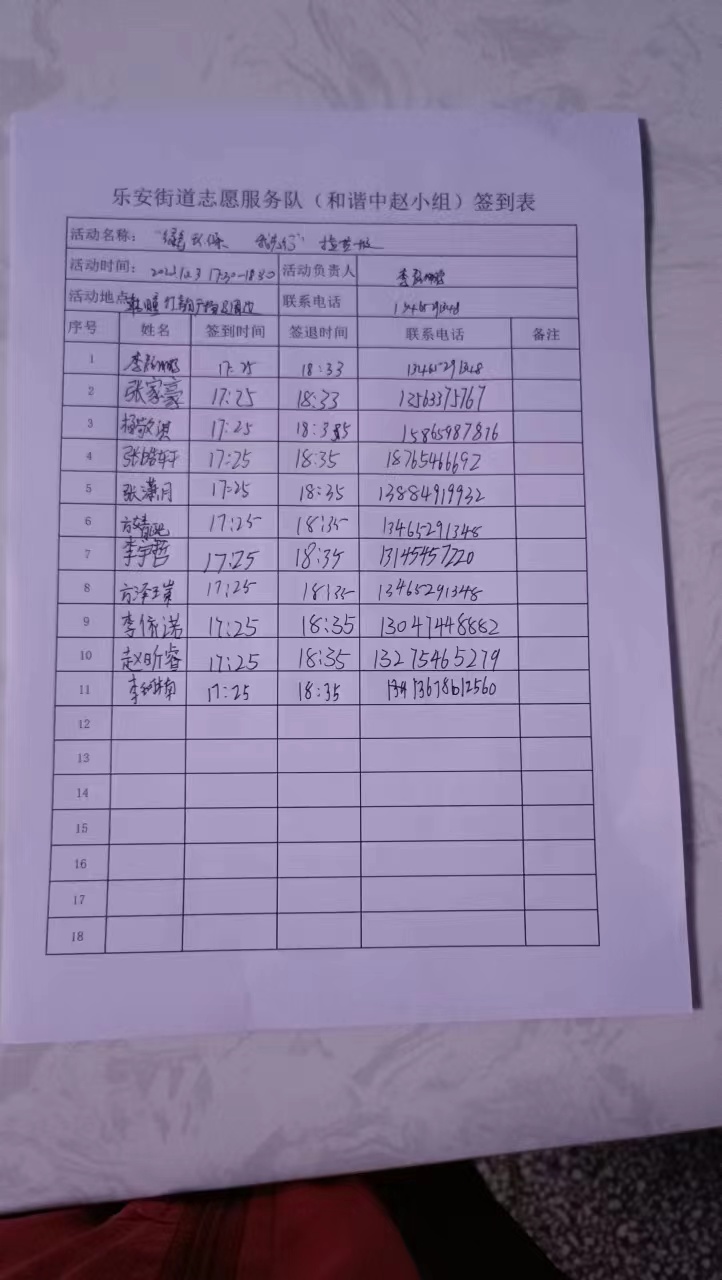 乐安街道志愿服务队（和谐中赵小组）签到表
活动名称：“绿色环保 我先行”捡垃圾
活动时间： 17:30-18:30 活动负责人
活动地点 联系电话
序号 姓名 签到时间 签退时间 联系电话 备注
1 17:25 18:33 13465291348
2 张家豪 17:25 18:33 12563375767
3 杨敬淇 17:25 18:335 15865987876
4 张皓轩 17:25 18:35 18765466692
5 张潇月 17:25 18:35 13884919932
6 17:25 18:35 13465291348
7 李宇哲 17:25 18:35 13145457220
8 17:25 18:35 13465291348
9 李依诺 17:25 18:35 13047448882
10 赵昕睿 17:25 18:35 13275465279
11 17:25 18:35
12
13
14
15
16
17
18